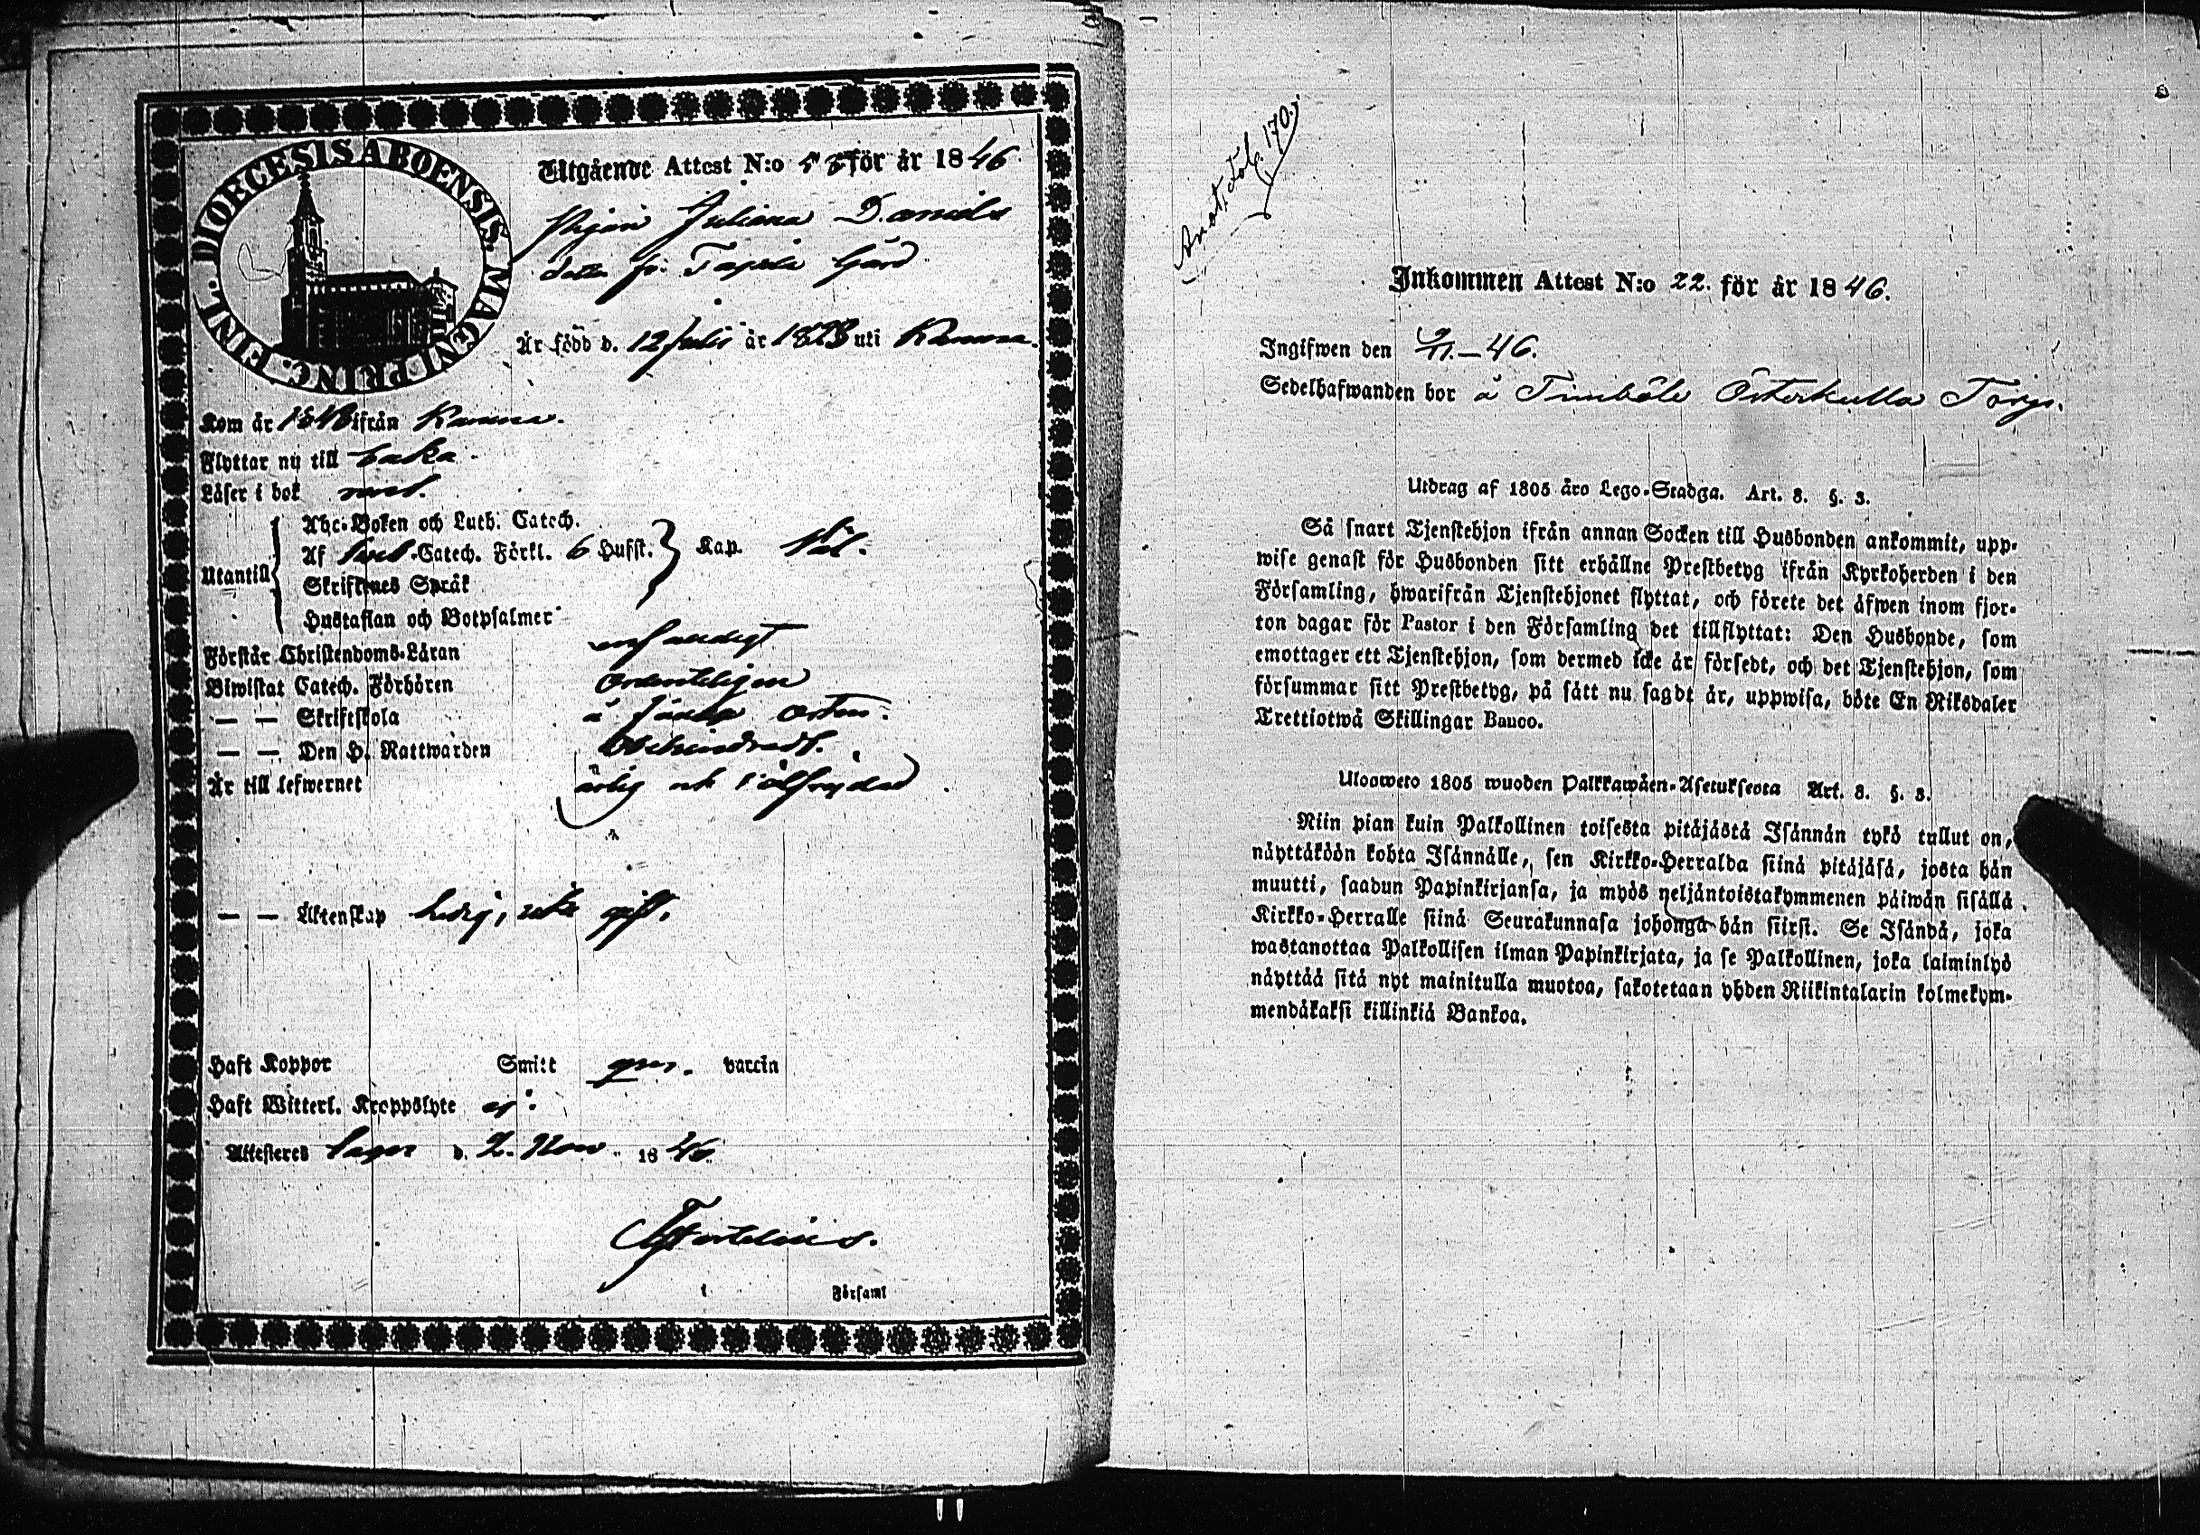 DIOECESIS ABOENSIS. MAGNI PRINC. FINL.
Utgående Attest N:o för år 1846.
Pigan Juliana Daniels
dotter fr. Gård
Är född d. 12 Julii år 1823 uti
Kom år ifrån
Flyttar nu till baka.
Läser i bok
Utantill
Abc-Boken och Luth. Catech.
Af Catech. Förkl. 6 Hufst. Kap.
Skriftenes Språk
Hustaflan och Botpsalmer
Förstår Christendoms-Läran
Biwistat Catech. Förhören Ordenteligen
— — Skriftskola å
— — Den H. Nattwarden
Är till lefwernet ärlig och
— — Äktenskap ledig, icke gift.
Haft Koppor Smitt vaccin
Haft Witterl. Kroppslyte ej.
Attesteres d. 2. Nov. 1846.
i Församl
Annot. Fol. 170.
Inkommen Attest N:o 22. för år 1846.
Ingifwen den 9/11.—46.
Sedelhafwanden bor å Österkulla Torp.
Utdrag af 1805 års Lego-Stadga. Art. 8. §. 3.
Så snart Tjenstehjon ifrån annan Socken till Husbonden ankommit, upp-
wise genast för Husbonden sitt erhållne Prestbetyg ifrån Kyrkoherden i den
Församling, hwarifrån Tjenstehjonet flyttat, och förete det äfwen inom fjor-
ton dagar för Pastor i den Församling det tillflyttat: Den Husbonde, som
emottager ett Tjenstehjon, som dermed icke är försedt, och det Tjenstehjon, som
försummar sitt Prestbetyg, på sätt nu sagdt är, uppwisa, böte En Riksdaler
Trettiotwå Skillingar Banco.
Ulosweto 1805 wuoden Palkkawäen-Asetuksesta Art. 8. §. 3.
Niin pian kuin Palkollinen toisesta pitäjästä Isännän tykö tullut on,
näyttäköön kohta Isännälle, sen Kirkko-Herralda siinä pitäjäsä, josta hän
muutti, saadun Papinkirjansa, ja myös neljäntoistakymmenen päiwän sisällä
Kirkko-Herralle siinä Seurakunnasa johonga hän siirsi. Se Isändä, joka
wastanottaa Palkollisen ilman Papinkirjata, ja se Palkollinen, joka laiminlyö
näyttää sitä nyt mainitulla muotoa, sakotetaan yhden Riikintalarin kolmekym-
mendäkaksi killinkiä Bankoa.